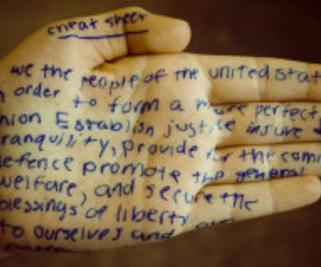 cheat sheet
we the people of the united stat
n order to form a more perfect
nion Establish justice insure
ranquility, provide for the comm
efence promote the general
welfare, and secure the
blessings of liberty
to ourselves and our